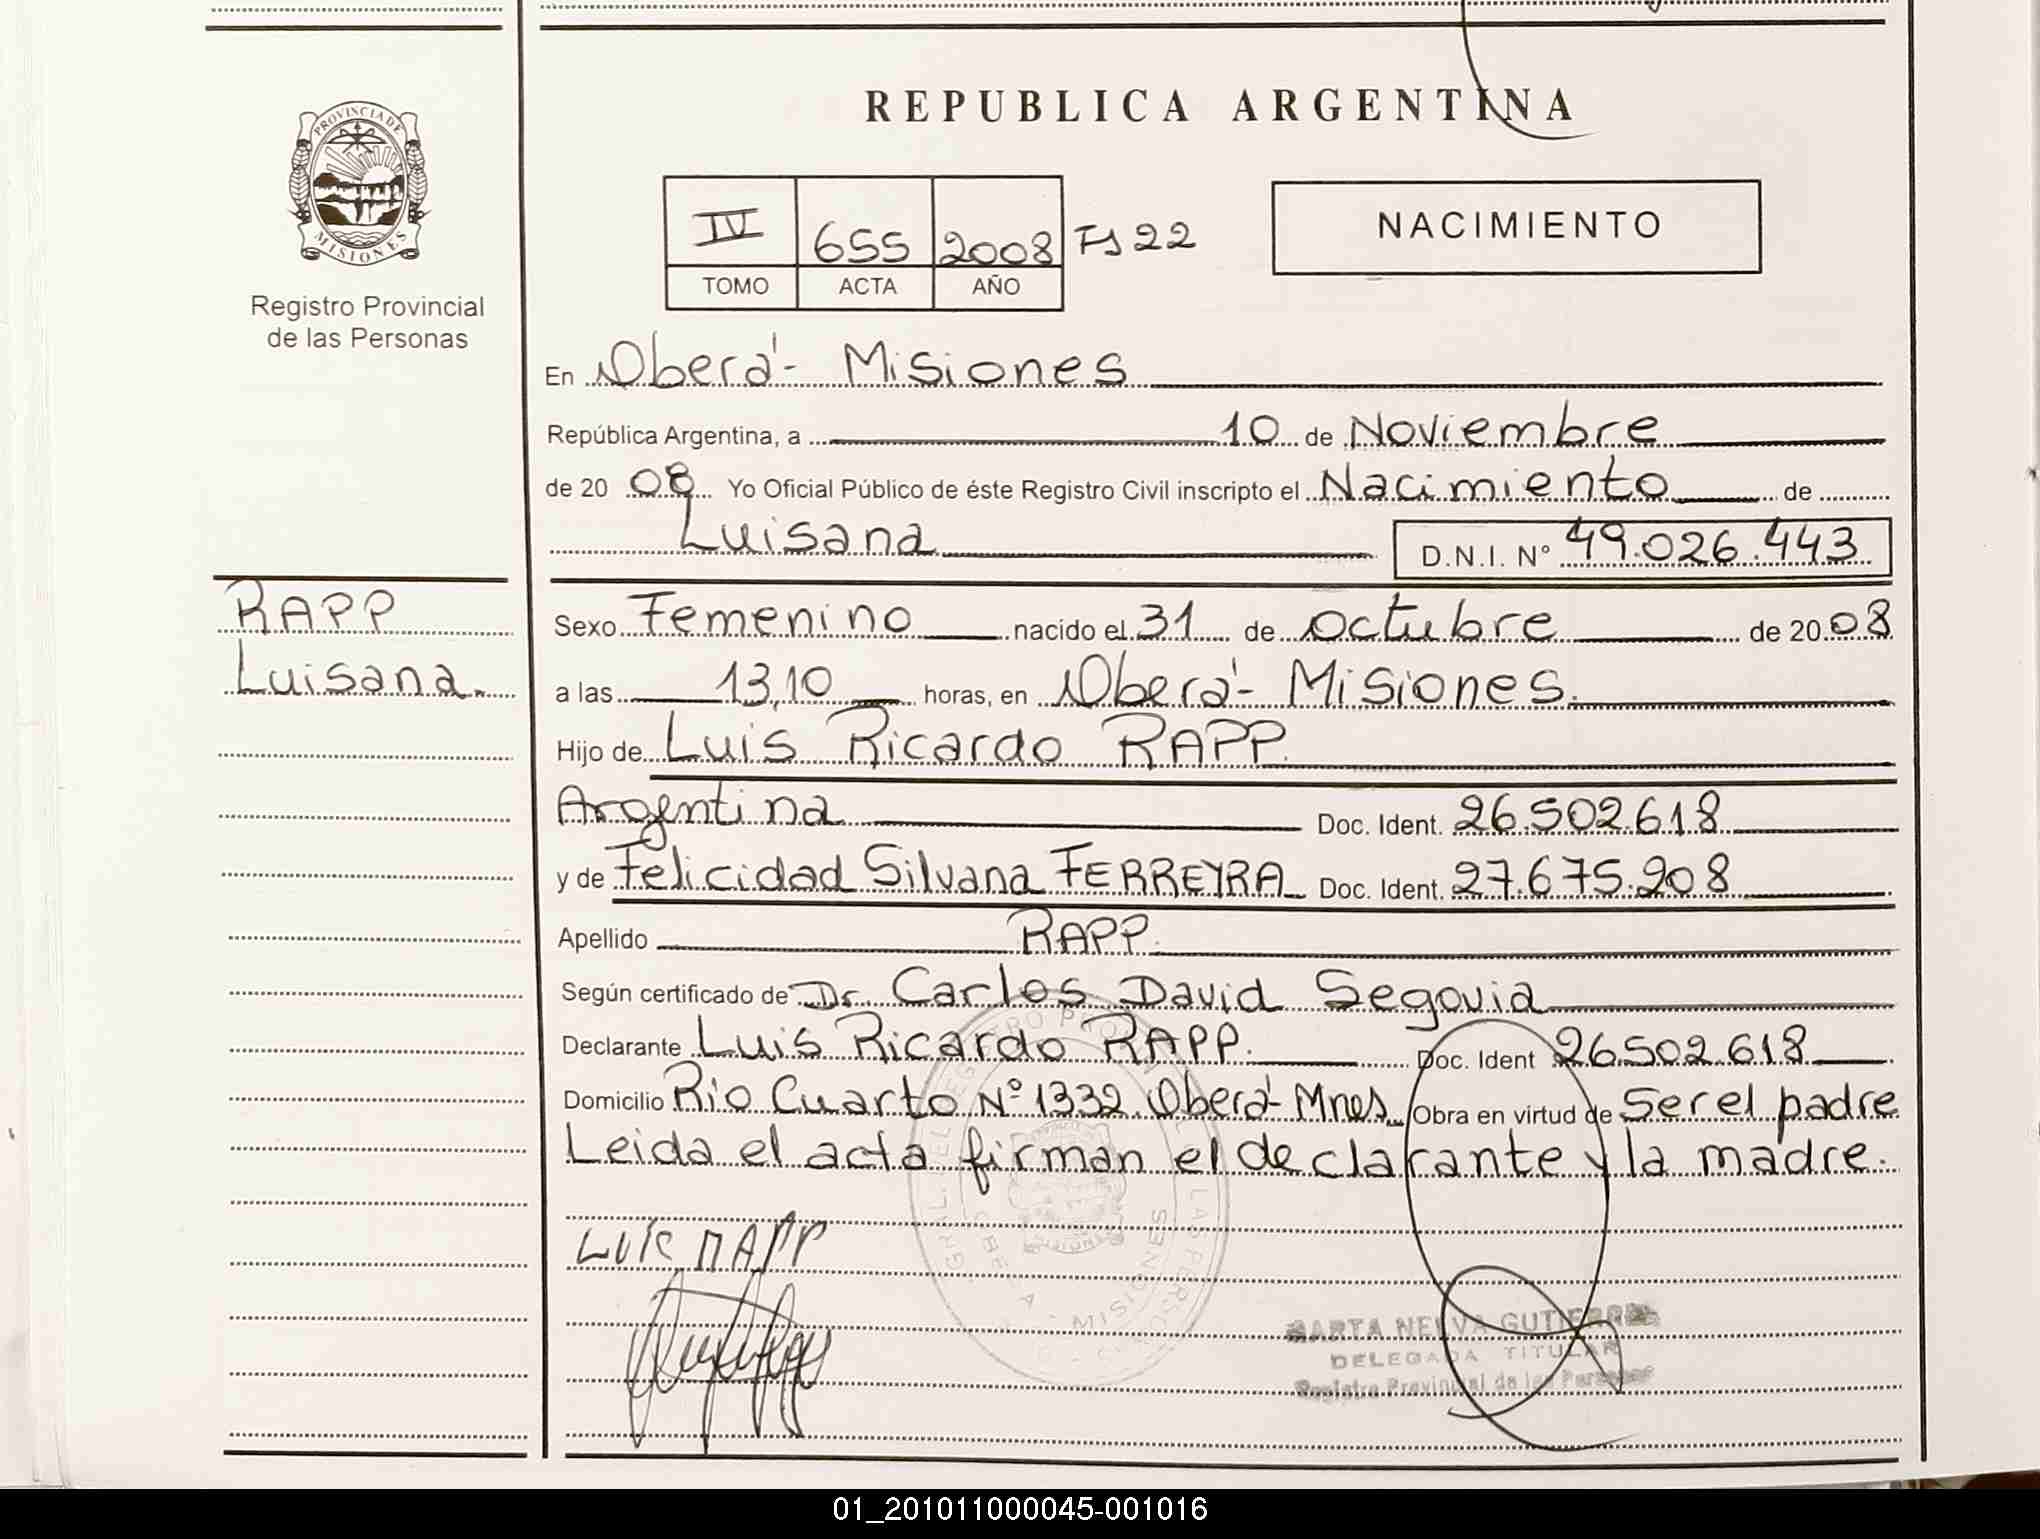 REPUBLICA ARGENTINA
PROVINCIA DE
MISIONES
Registro Provincial
de las Personas
IV 655 2008 Fs 22
TOMO ACTA AÑO
NACIMIENTO
En Oberá - Misiones
República Argentina, a 10 de Noviembre
de 2008 Yo Oficial Público de éste Registro Civil inscripto el Nacimiento de
Luisana D.N.I. N° 49.026.443
RAPP
Luisana.
Sexo Femenino nacido el 31 de octubre de 2008
a las 13,10 horas, en Oberá - Misiones.
Hijo de Luis Ricardo RAPP.
Argentina Doc. Ident. 26.502.618
y de Felicidad Silvana FERREYRA Doc. Ident. 27.675.208
Apellido RAPP.
Según certificado de Dr. Carlos David Segovia
Declarante Luis Ricardo RAPP. Doc. Ident 26.502.618
Domicilio Rio Cuarto N° 1332 Oberá - Mnes. Obra en virtud de Ser el padre
Leida el acta firman el declarante y la madre.
LUIS RAPP
MARTA NELVA GUTIERREZ
DELEGADA TITULAR
Registro Provincial de las Personas
01_201011000045-001016